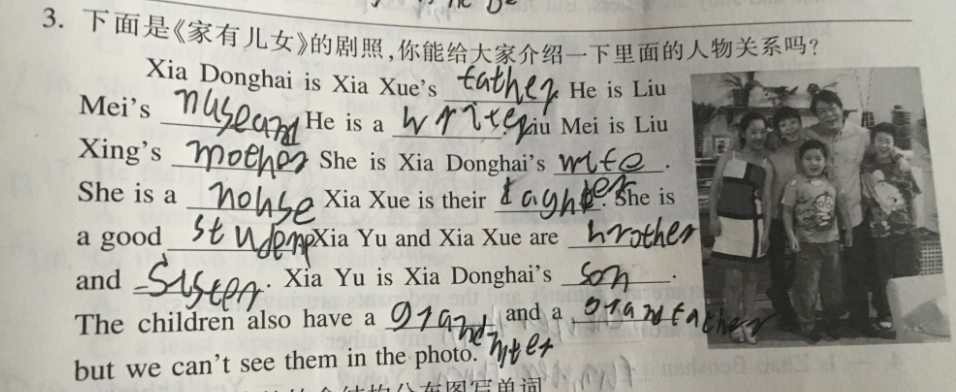 3. 下面是《家有儿女》的剧照,你能给大家介绍一下里面的人物关系吗?
Xia Donghai is Xia Xue's father. He is Liu
Mei's husband He is a writer. Liu Mei is Liu
Xing's mother She is Xia Donghai's wife.
She is a house Xia Xue is their daughter. She is
a good student Xia Yu and Xia Xue are brother
and Sister. Xia Yu is Xia Donghai's son.
The children also have a grand and a grandfather
but we can't see them in the photo.